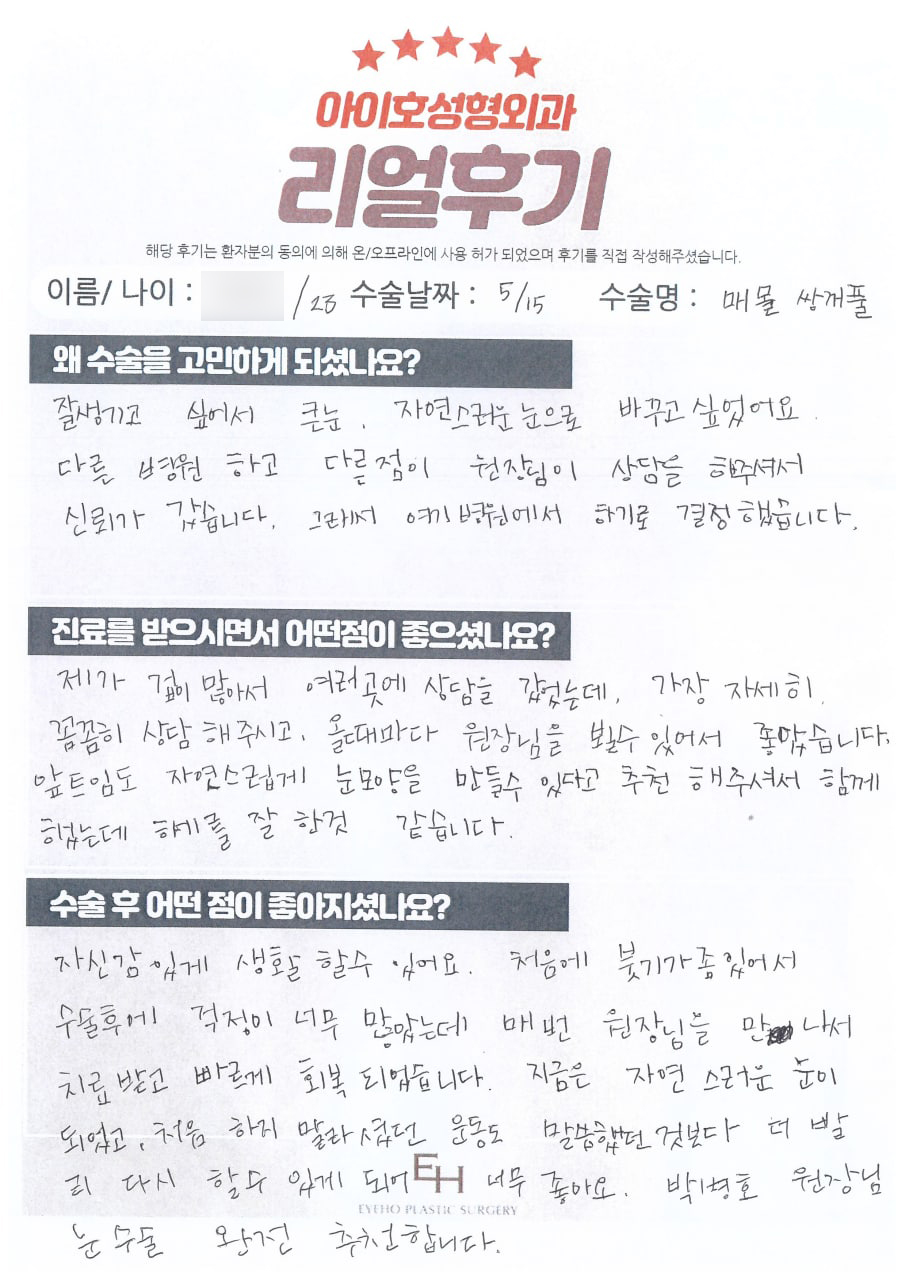 아이호성형외과
리얼후기
해당 후기는 환자분의 동의에 의해 온/오프라인에 사용 허가 되었으며 후기를 직접 작성해주셨습니다.
이름/ 나이 : /28 수술날짜 : 5/15 수술명 : 매몰 쌍꺼풀
왜 수술을 고민하게 되셨나요?
잘생기고 싶어서 큰눈, 자연스러운 눈으로 바꾸고 싶었어요.
다른 병원 하고 다른점이 원장님이 상담을 해주셔서
신뢰가 갔습니다. 그래서 여기 병원에서 하기로 결정 했습니다.
진료를 받으시면서 어떤점이 좋으셨나요?
제가 겁이 많아서 여러곳에 상담을 갔었는데, 가장 자세히.
꼼꼼히 상담 해주시고, 올때마다 원장님을 뵐수 있어서 좋았습니다.
앞트임도 자연스럽게 눈모양을 만들수 있다고 추천 해주셔서 함께
했는데 잘 한것 같습니다.
수술 후 어떤 점이 좋아지셨나요?
자신감 있게 생활 할수 있어요. 처음에 붓기가 좀 있어서
수술후에 걱정이 너무 많았는데 매번 원장님을 만나서
치료 받고 빠르게 회복 되었습니다. 지금은 자연 스러운 눈이
되었고, 처음 하지 말라 셨던 운동도 말씀했던 것보다 더 빨
리 다시 할수 있게 되어 너무 좋아요. 박병호 원장님
EH
EYEHO PLASTIC SURGERY
눈 수술 완전 추천합니다.